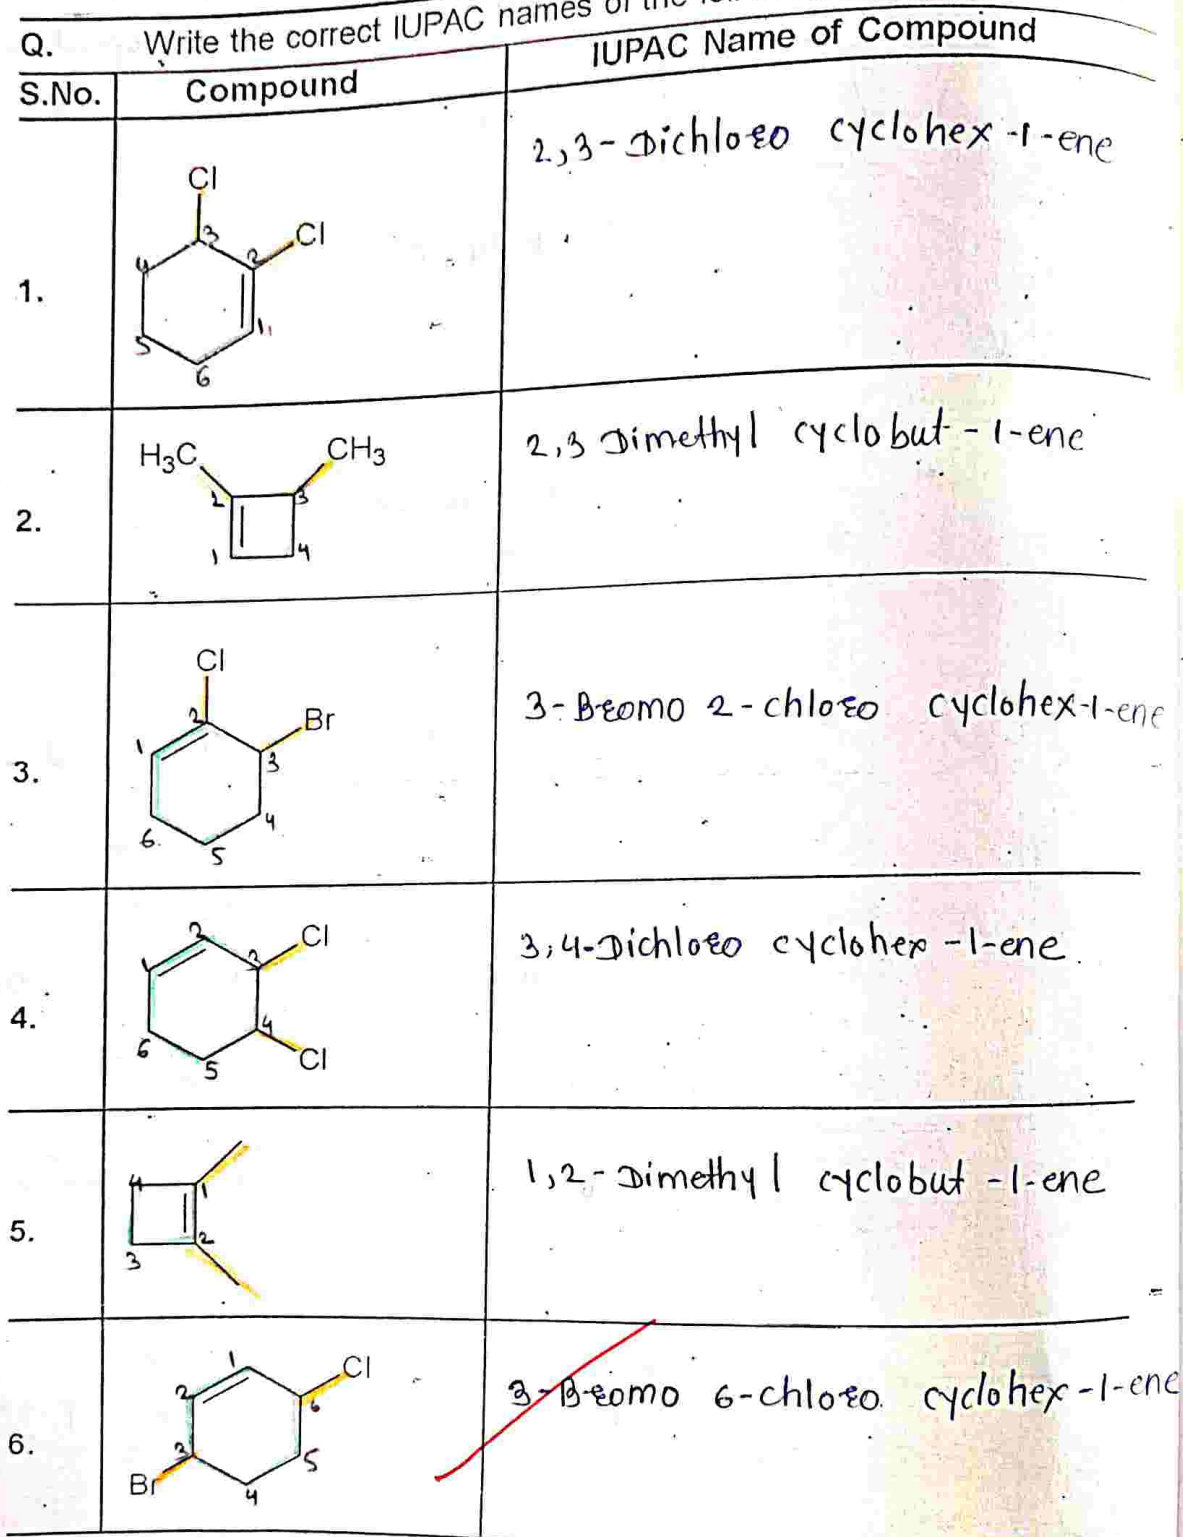 Q. Write the correct IUPAC names of the
S.No. Compound IUPAC Name of Compound
1.
Cl
Cl
3
2
4
1
5
6
2,3-Dichloro cyclohex-1-ene
2.
H₃C
CH₃
2
3
1
4
2,3 Dimethyl cyclobut-1-ene
3.
Cl
2
Br
1
3
6.
4
5
3-Bromo 2-chloro cyclohex-1-ene
4.
2
Cl
1
3
4
6
5
Cl
3,4-Dichloro cyclohex-1-ene.
5.
4
1
2
3
1,2-Dimethyl cyclobut-1-ene
6.
1
Cl
2
6
3
5
Br
4
3-Bromo 6-chloro. cyclohex-1-ene